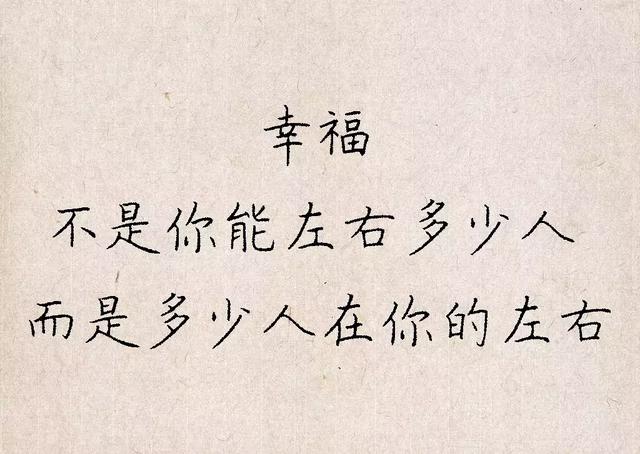 幸福
不是你能左右多少人
而是多少人在你的左右